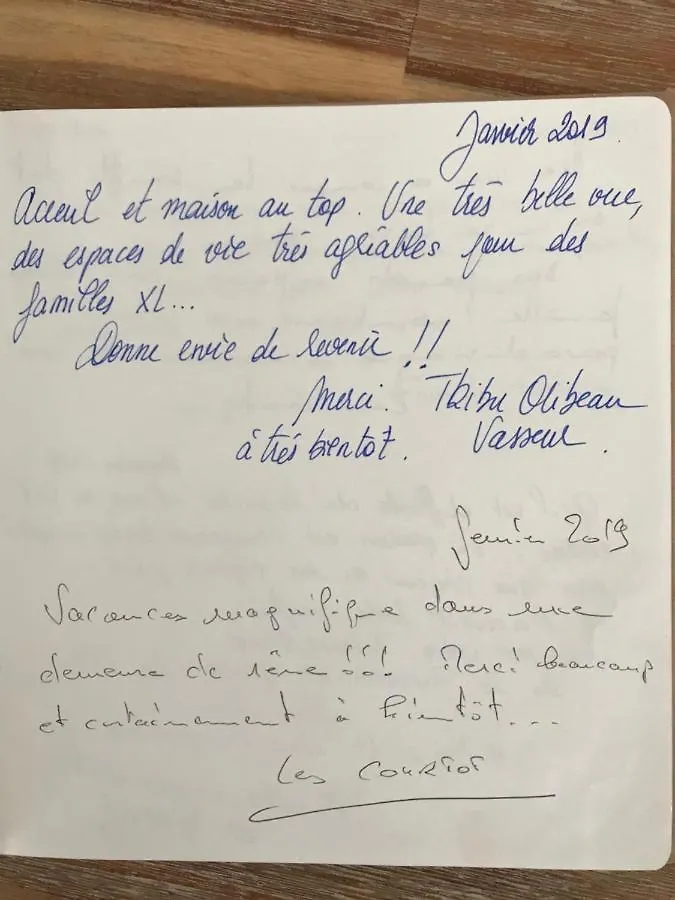 Janvier 2019.
Acceuil et maison au top. Une très belle vue,
des espaces de vie très agréables pour des
familles XL...
Donne envie de revenir !!
Merci. Tribu Olibeau
à très bientot. Vasseur.
fevrier 2019
Vacances magnifique dans une
demeure de rêve !!! Merci beaucoup
et certainement à bientôt...
Les COURTOT